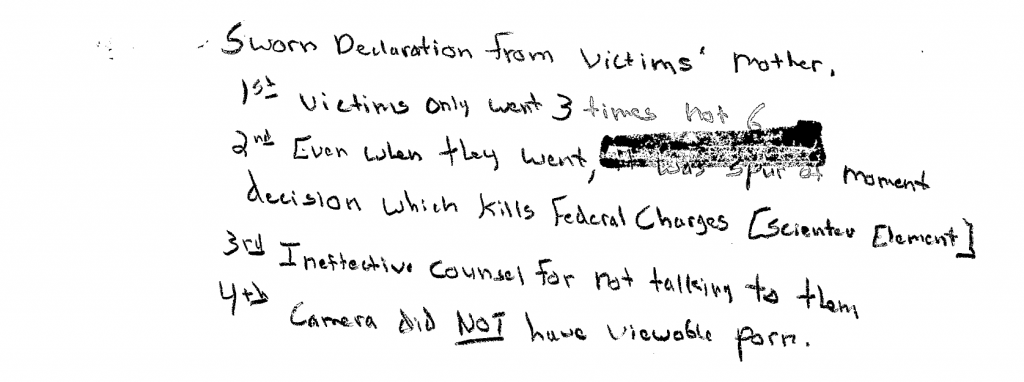 Sworn Declaration from Victims' Mother,
1st Victims only went 3 times not 6
2nd Even when they went, it was spur of moment
decision which kills Federal Charges [Scienter Element]
3rd Ineffective Counsel for not talking to them
4th Camera did NOT have viewable porn.